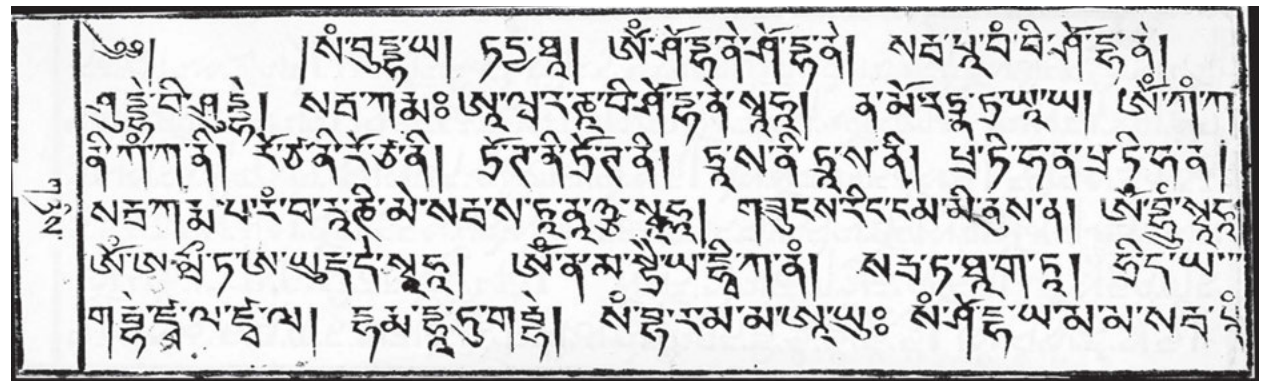 ༄༅། །སཾ་བུདྡྷ་ཡ། ཏདྱ་ཐཱ། ཨོཾ་ཤོ་དྷ་ནེ་ཤོ་དྷ་ནེ། སརྦ་པཱ་པཾ་བི་ཤོ་དྷ་ནེ།
ཤུདྡྷེ་བི་ཤུདྡྷེ། སརྦ་ཀརྨ་ཨཱ་ཝ་ར་ཎ་བི་ཤོ་དྷ་ནེ་སྭཱཧཱ། ན་མོ་རཏྣ་ཏྲ་ཡཱ་ཡ། ཨོཾ་ཀཾ་ཀ
ནི་ཀཾ་ཀ་ནི། རོ་ཙ་ནི་རོ་ཙ་ནི། ཏྲོ་ཊ་ནི་ཏྲོ་ཊ་ནི། ཏྲཱ་ས་ནི་ཏྲཱ་ས་ནི། པྲ་ཏི་ཧ་ན་པྲ་ཏི་ཧ་ན།
སརྦ་ཀརྨ་པ་རཾ་པ་རཱ་ཎི་མེ་སརྦ་ས་ཏྭཱ་ནཱཉྩ་སྭཱཧཱ། གཟུངས་རིང་ངམ་མི་ནུས་ན། ཨོཾ་བྷྲཱུཾ་སྭཱཧཱ
ཨོཾ་ཨ་མྲྀ་ཏ་ཨ་ཡུརྡ་དེ་སྭཱཧཱ། ཨོཾ་ན་མ་སྟྲཻ་ཡ་དྷྭི་ཀ་ནཾ། སརྦ་ཏ་ཐཱ་ག་ཏཱ། ཧྲི་ད་ཡ་
གརྦྷེ་ཛྭ་ལ་ཛྭ་ལ། དྷརྨ་དྷཱ་ཏུ་གརྦྷེ། སཾ་བྷ་ར་མ་མ་ཨཱ་ཡུ༔ སཾ་ཤོ་དྷ་ཡ་མ་མ་སརྦ་པཱ